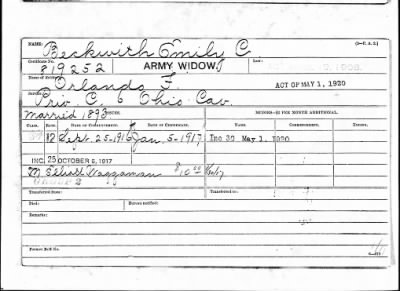 NAME: Beckwith Emily C. (3—U. S. A.)
Certificate No. 819252 ARMY WIDOW. Law:
Name of Soldier: Orlando F. ACT OF MAY 1, 1920
Service: Priv. C. 6 Ohio Cav.
Married 1893
MINORS—$2 PER MONTH ADDITIONAL.
CLASS. RATE. DATE OF COMMENCEMENT. DATE OF CERTIFICATE. NAME. COMMENCEMENT. EXPIRES.
12 Sept. 25-1916 Jan. 5-1917 Inc 30 May 1, 1920
INC. 25 OCTOBER 6, 1917
M. Elliott Waggaman $10.00
Transferred from: Transferred to:
Died: Bureau notified:
Remarks:
Former Roll No.